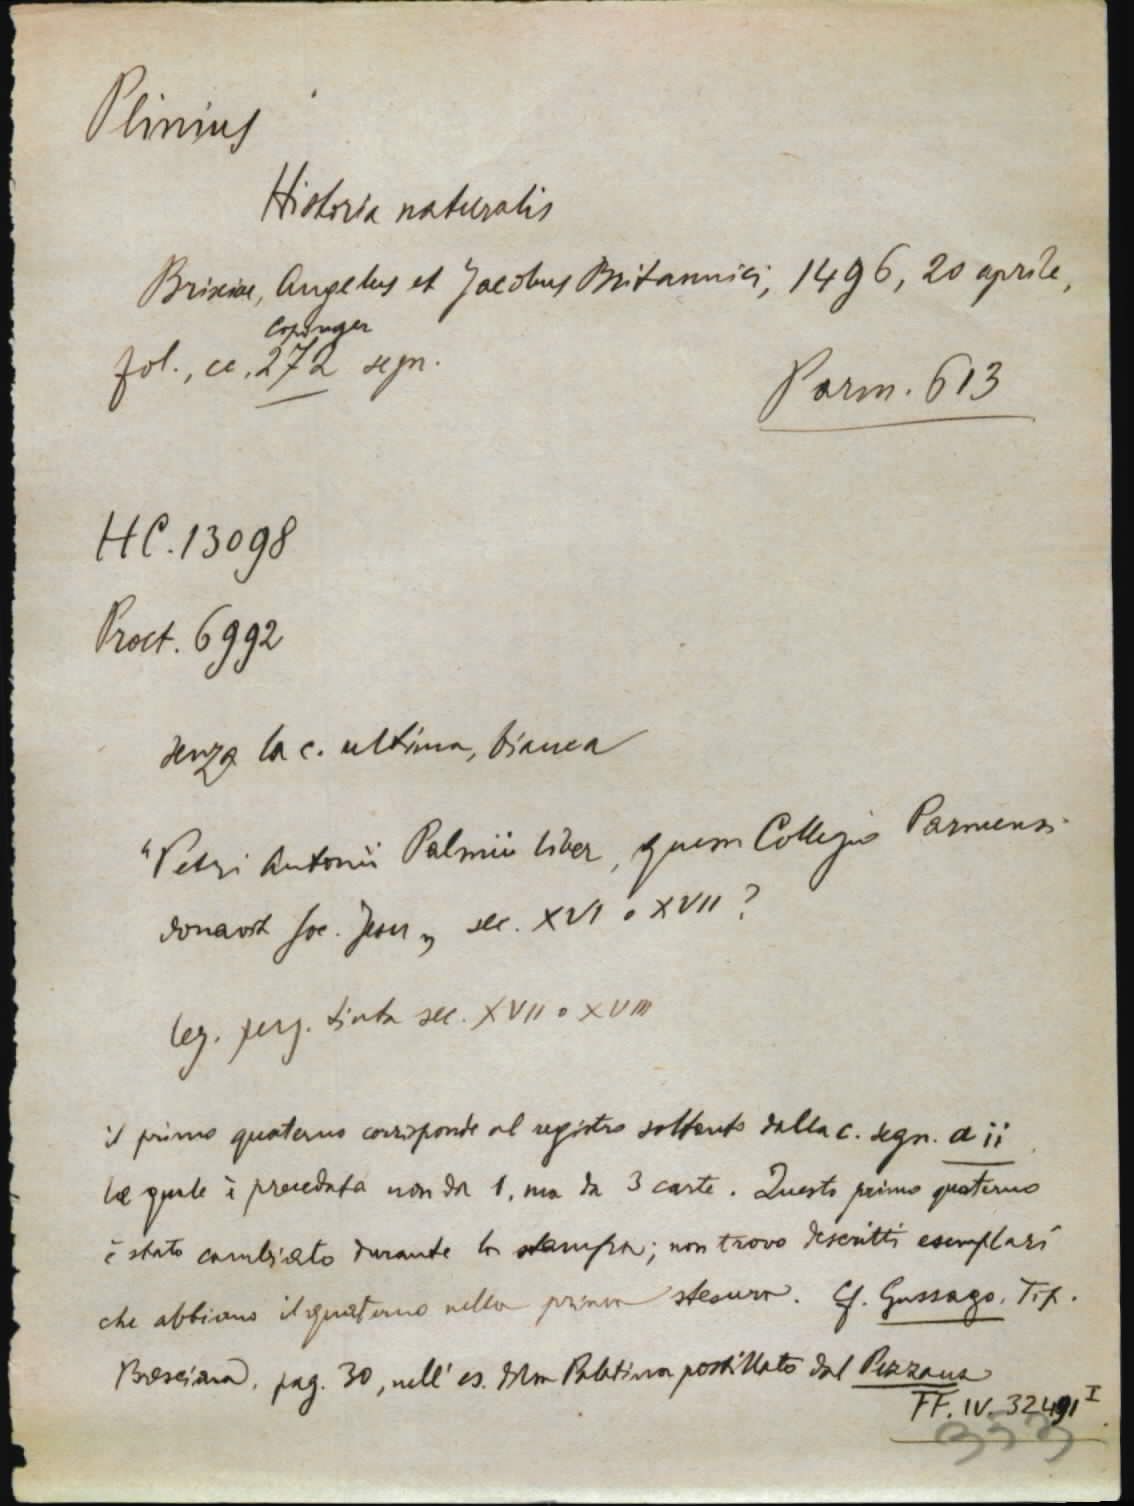 Plinius
Historia naturalis
Brixiae, Angelus et Jacobus Britannici, 1496, 20 aprile,
Copinger
fol., cc. 272 segn.
Parm. 613
HC. 13098
Proct. 6992
senza la c. ultima, bianca
"Petri Antonii Palmii liber, quem Collegio Parmensi
donavit Soc. Jesu„ sec. XVI o XVII?
leg. perg. tinta sec. XVII o XVIII
il primo quaterno corrisponde al registro soltanto dalla c. segn. a ii
la quale è preceduta non da 1, ma da 3 carte. Questo primo quaterno
è stato cambiato durante la stampa; non trovo descritti esemplari
che abbiano il quaterno nella prima stesura. Cf. Gussago. Tip.
Bresciana, pag. 30, nell'es. della Palatina postillato dal Pezzana
FF. IV. 32491 I